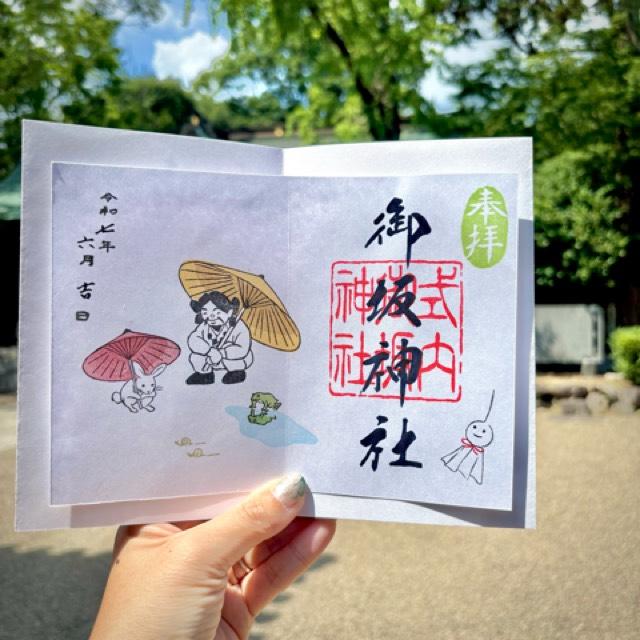 奉拝
御坂神社
式内
神社
令和七年
六月吉日